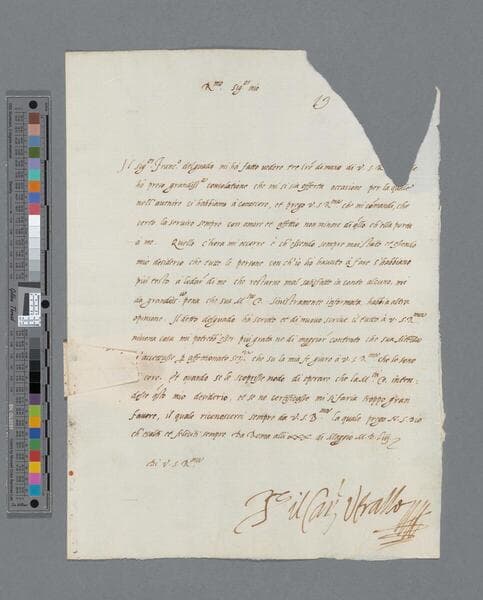 R.mo Sig.or mio
Il sig.or Franc.o delguado mi ha fatto vedere tre di mano di V. S. R.
ho preso grandiss.a consolatione che mi si sia offerta occasione per la quale
nell'auenire ci habbiamo à conoscere, et prego V. S. R.ma che mi comandi, che
certo la seruirò sempre con amore et affetto non minore di q.llo ch'ella porta
a me. Quello c'hora mi occorre è ch'essendo sempre mai stato et essendo
mio desiderio che tutte le persone con ch'io ho hauuto à fare s'habbiano
più tosto à lodar di me che restarne mal satisfatte in conto alcuno, mi
dà grandiss.a pena che sua M.tà C. sinistramente informata habbia altra
opinione. Il detto delguado ha scritto et di nuouo scriue il tutto à V. S. R.ma
niuna cosa mi potrebb'esser più grata ne di maggior contento che sua
che su la mia fe giuro à V. S. R.ma che le sono
Et quando se le scoprisse modo di operare che la M.tà C. inten
desse q.sto mio desiderio, et se ne certificasse mi faria troppo gran
fauore, il quale riconoscerei sempre da V. S. R.ma la quale prego N. S. Dio
ch'esalti et feliciti sempre. Da Roma alli XXX di Maggio M. D.
Di V. S. R.ma
il Car.l Verallo